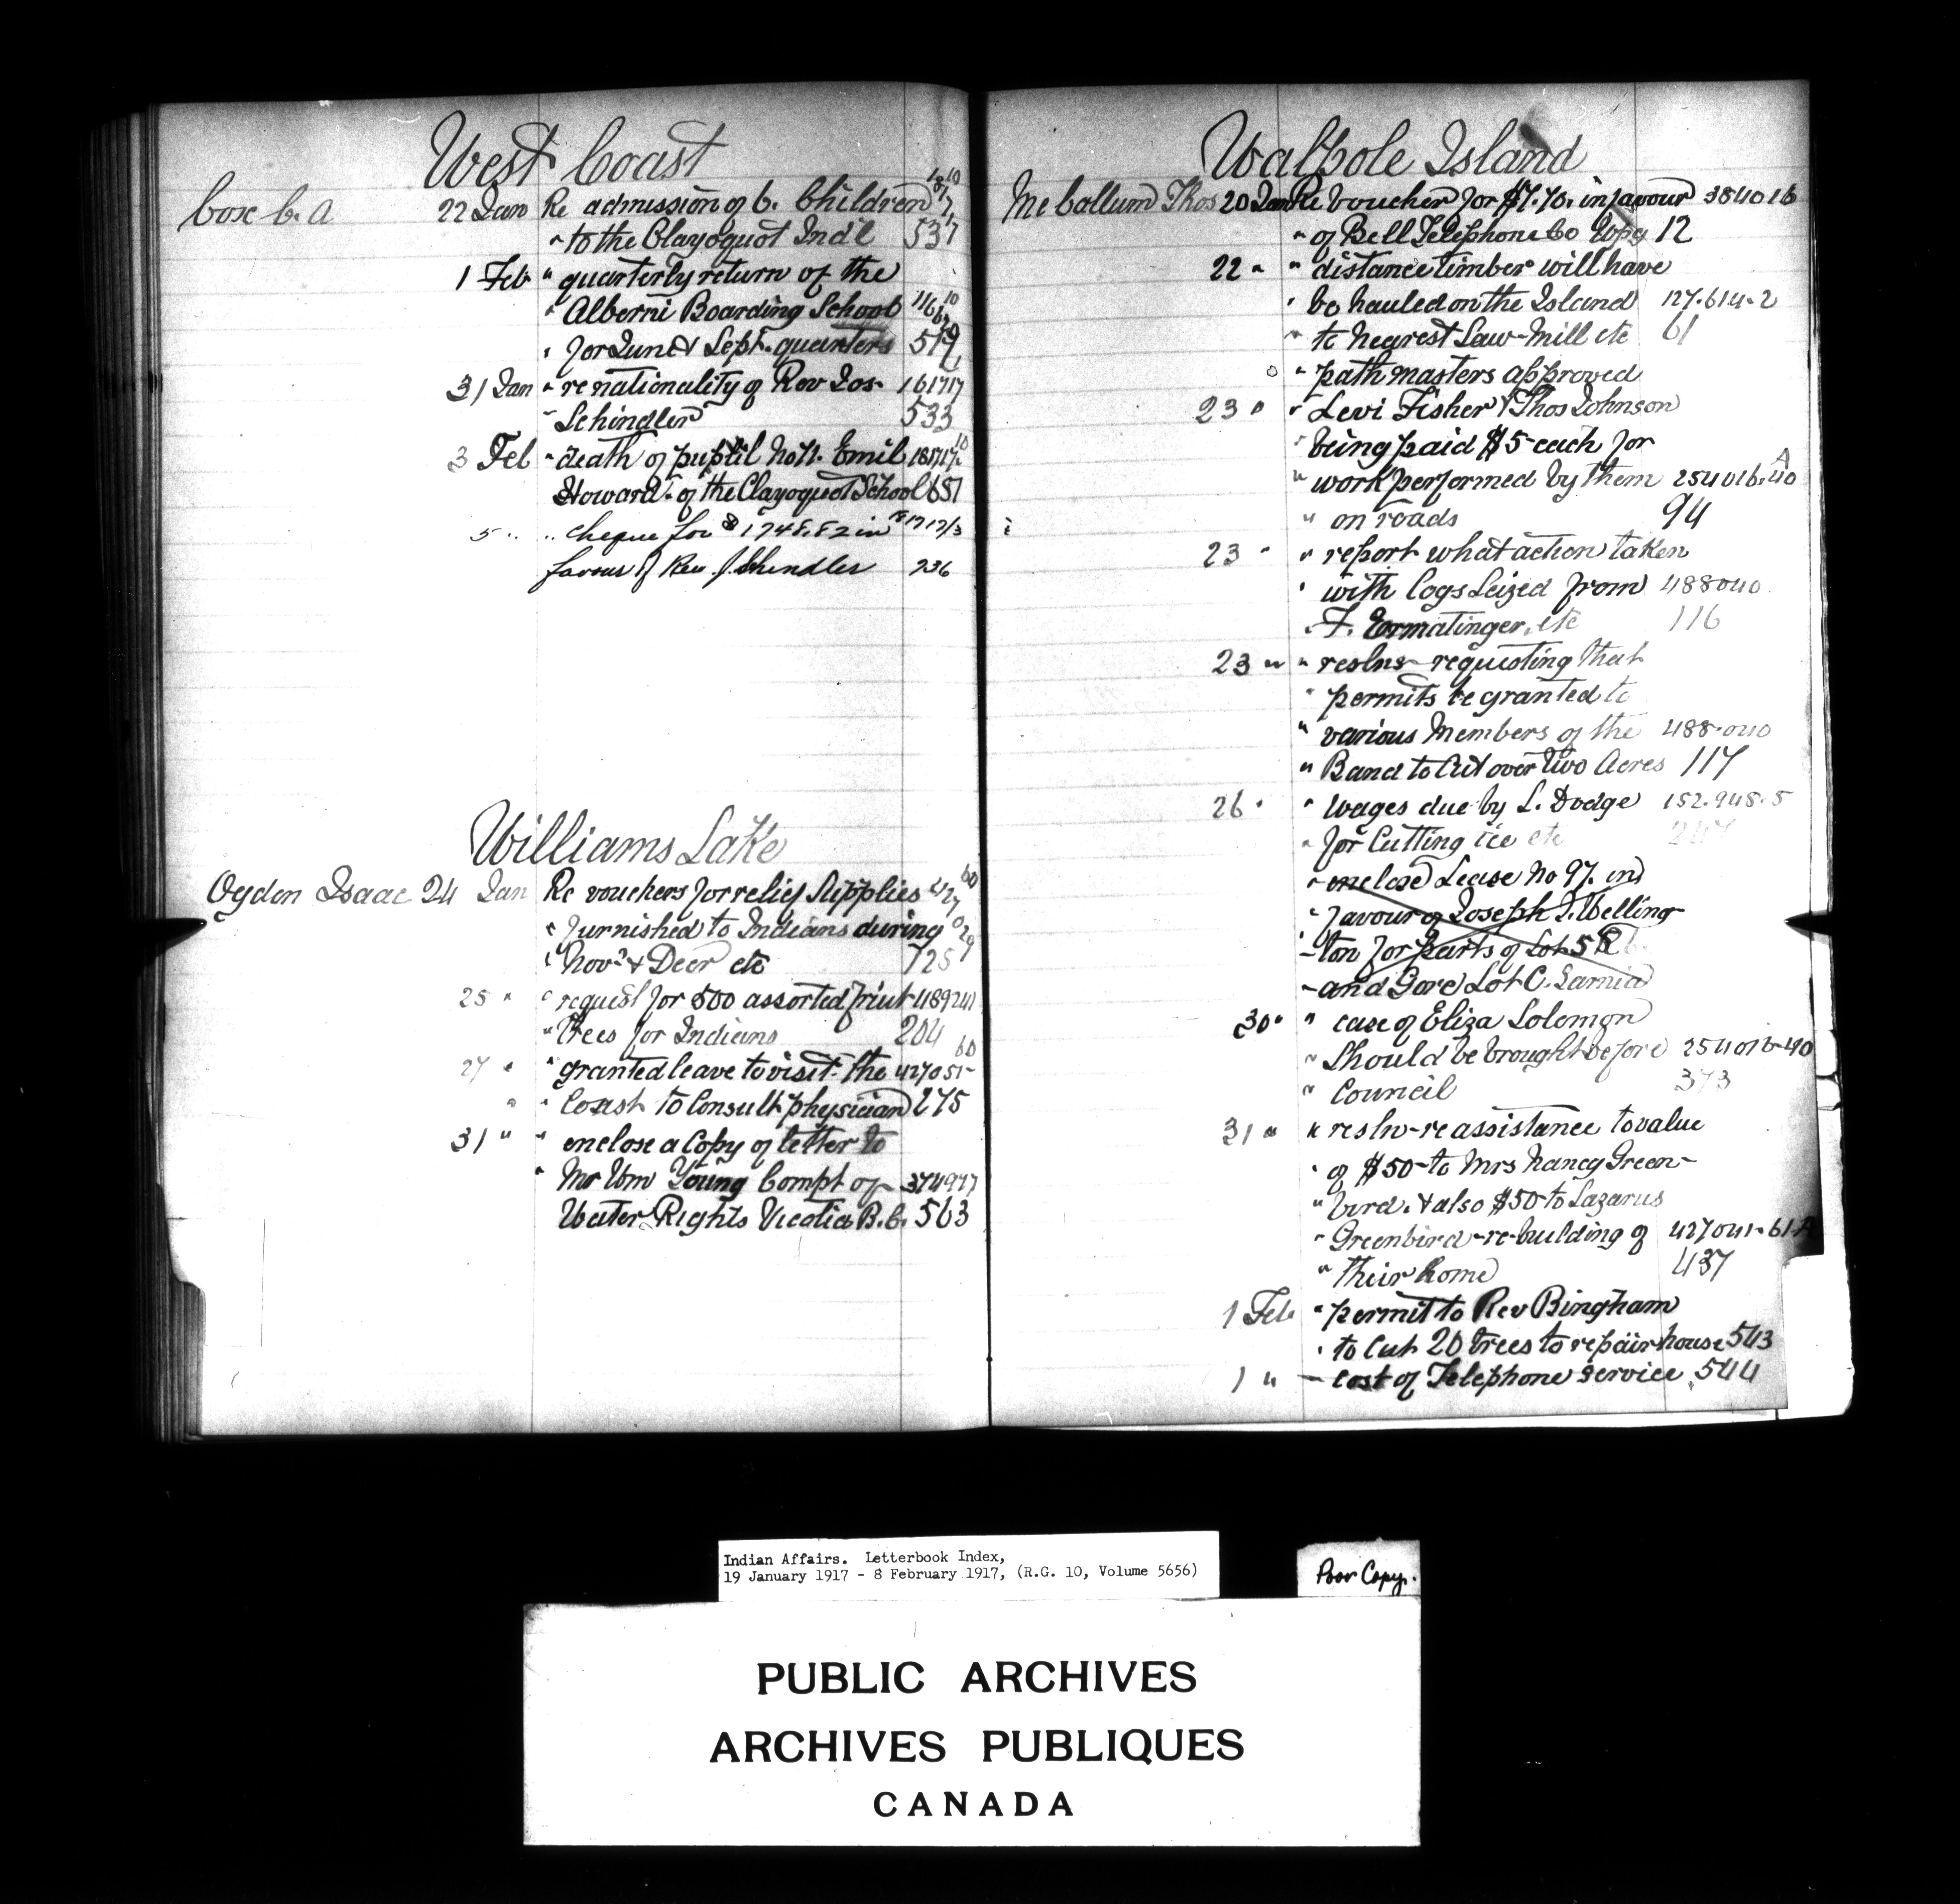 West Coast
Cox C. A 22 Jan Re admission of 6. Children
" to the Clayoquot Ind'l 537
1 Feb " quarterly return of the
" Alberni Boarding School
" for June & Sept. quarters
31 Jan " re nationality of Rev Jos. 161717
" Schindler 533
3 Feb " death of pupil No 11. Emil
Howard. of the Clayoquot School 651
5 " " cheque for $1748.82 in
favour of Rev. J. Shindler 736
Williams Lake
Ogden Isaac 24 Jan Re vouchers for relief Supplies
" furnished to Indians during
" Nov. & Decr etc 125
25 " " request for 500 assorted fruit 489241
" trees for Indians 204
27 " " granted leave to visit the 427051-
" " Coast to Consult physician 275
31 " " enclose a Copy of letter to
" Mr Wm Young Compt of 374977
Water Rights Victia B.C. 563
Walpole Island
McCallum Thos 20 Jan Re voucher for $7.70. in favour 384016
" of Bell Telephone Co 12
22 " " distance timber will have
" be hauled on the Island 127.614-2
" to nearest Saw-Mill etc 61
" path masters approved
23 " " Levi Fisher & Thos Johnson
" being paid $5- each for
" work performed by them 254016-40 A
" on roads 94
23 " " report what action taken
" with logs Seized from 488040
" F. Ermatinger, etc 116
23 " " reslns- requesting that
" permits be granted to
" various Members of the 488.040
" Band to Cut over two Acres 117
26 " " wages due by L. Dodge 152.948-5
" for Cutting ice etc 247
" enclose Lease No 97. in
" favour of Joseph T. Welling-
- ton for parts of Lot 5 R
- and Gore Lot C. Sarnia
30 " " case of Eliza Solomon
" Should be brought before 254016-40
" Council 373
31 " " resln-re assistance to value
" of $50- to Mrs Nancy Green-
" bird. & also $50- to Lazarus
" Greenbird - re-building of 427041-61-A
" their home 437
1 Feb " permit to Rev Bingham
" to Cut 20 trees to repair house 543
1 " - cost of Telephone service 544
Indian Affairs. Letterbook Index,
19 January 1917 - 8 February 1917, (R.G. 10, Volume 5656)
Poor Copy.
PUBLIC ARCHIVES
ARCHIVES PUBLIQUES
CANADA